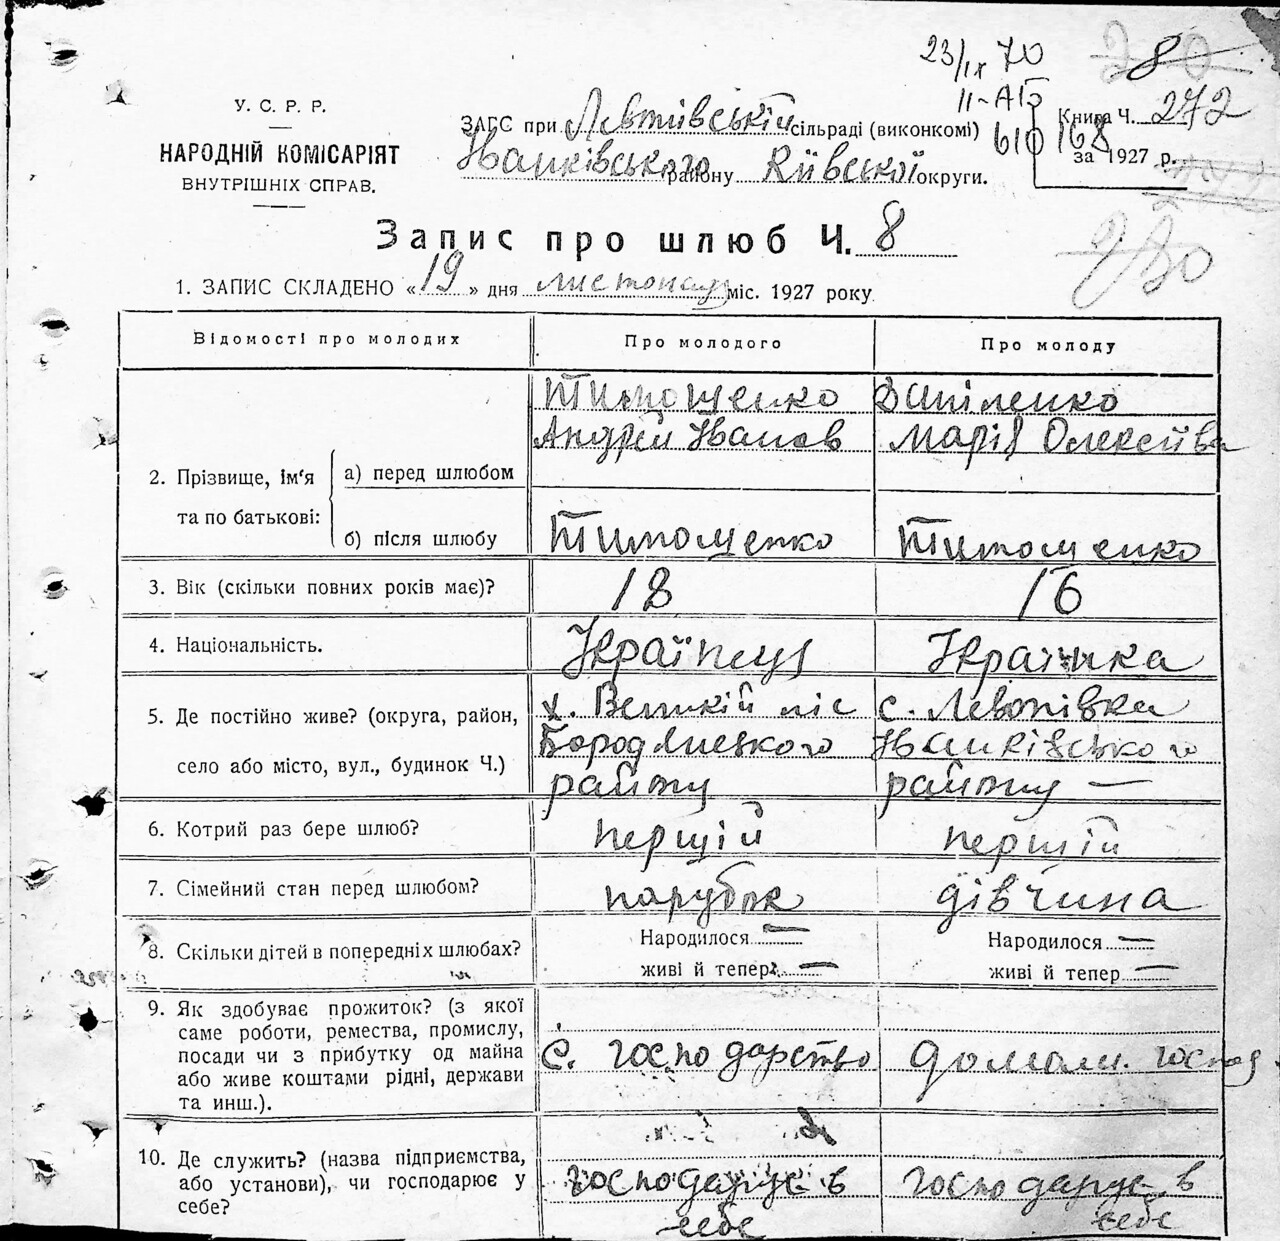 23/IX 70
8
У. С. Р. Р.
II-АБ
ЗАГС при Левонівській сільраді (виконкомі)
Книга Ч. 272
610 168
НАРОДНІЙ КОМІСАРІЯТ
Іванківського району Київської округи.
за 1927 р.
ВНУТРІШНІХ СПРАВ.
Запис про шлюб Ч. 8
1. ЗАПИС СКЛАДЕНО «19» дня листопад міс. 1927 року
Відомості про молодих
Про молодого
Про молоду
2. Прізвище, ім'я та по батькові:
а) перед шлюбом
Тимошенко
Андрій Іванов
Марія Олексіїва
б) після шлюбу
Тимошенко
Тимошенко
3. Вік (скільки повних років має)?
18
16
4. Національність.
Українець
Українка
5. Де постійно живе? (округа, район,
село або місто, вул., будинок Ч.)
х. Великій ліс
Бородянського
району
с. Левонівка
Іванківського
району —
6. Котрий раз бере шлюб?
першій
першій
7. Сімейний стан перед шлюбом?
парубок
дівчина
8. Скільки дітей в попередніх шлюбах?
Народилося —
живі й тепер —
Народилося —
живі й тепер —
9. Як здобуває прожиток? (з якої
саме роботи, ремества, промислу,
посади чи з прибутку од майна
або живе коштами рідні, держави
та инш.).
с. господарство
домашн. господ.
10. Де служить? (назва підприємства,
або установи), чи господарює у
себе?
господарує в
себе
господарує в
себе